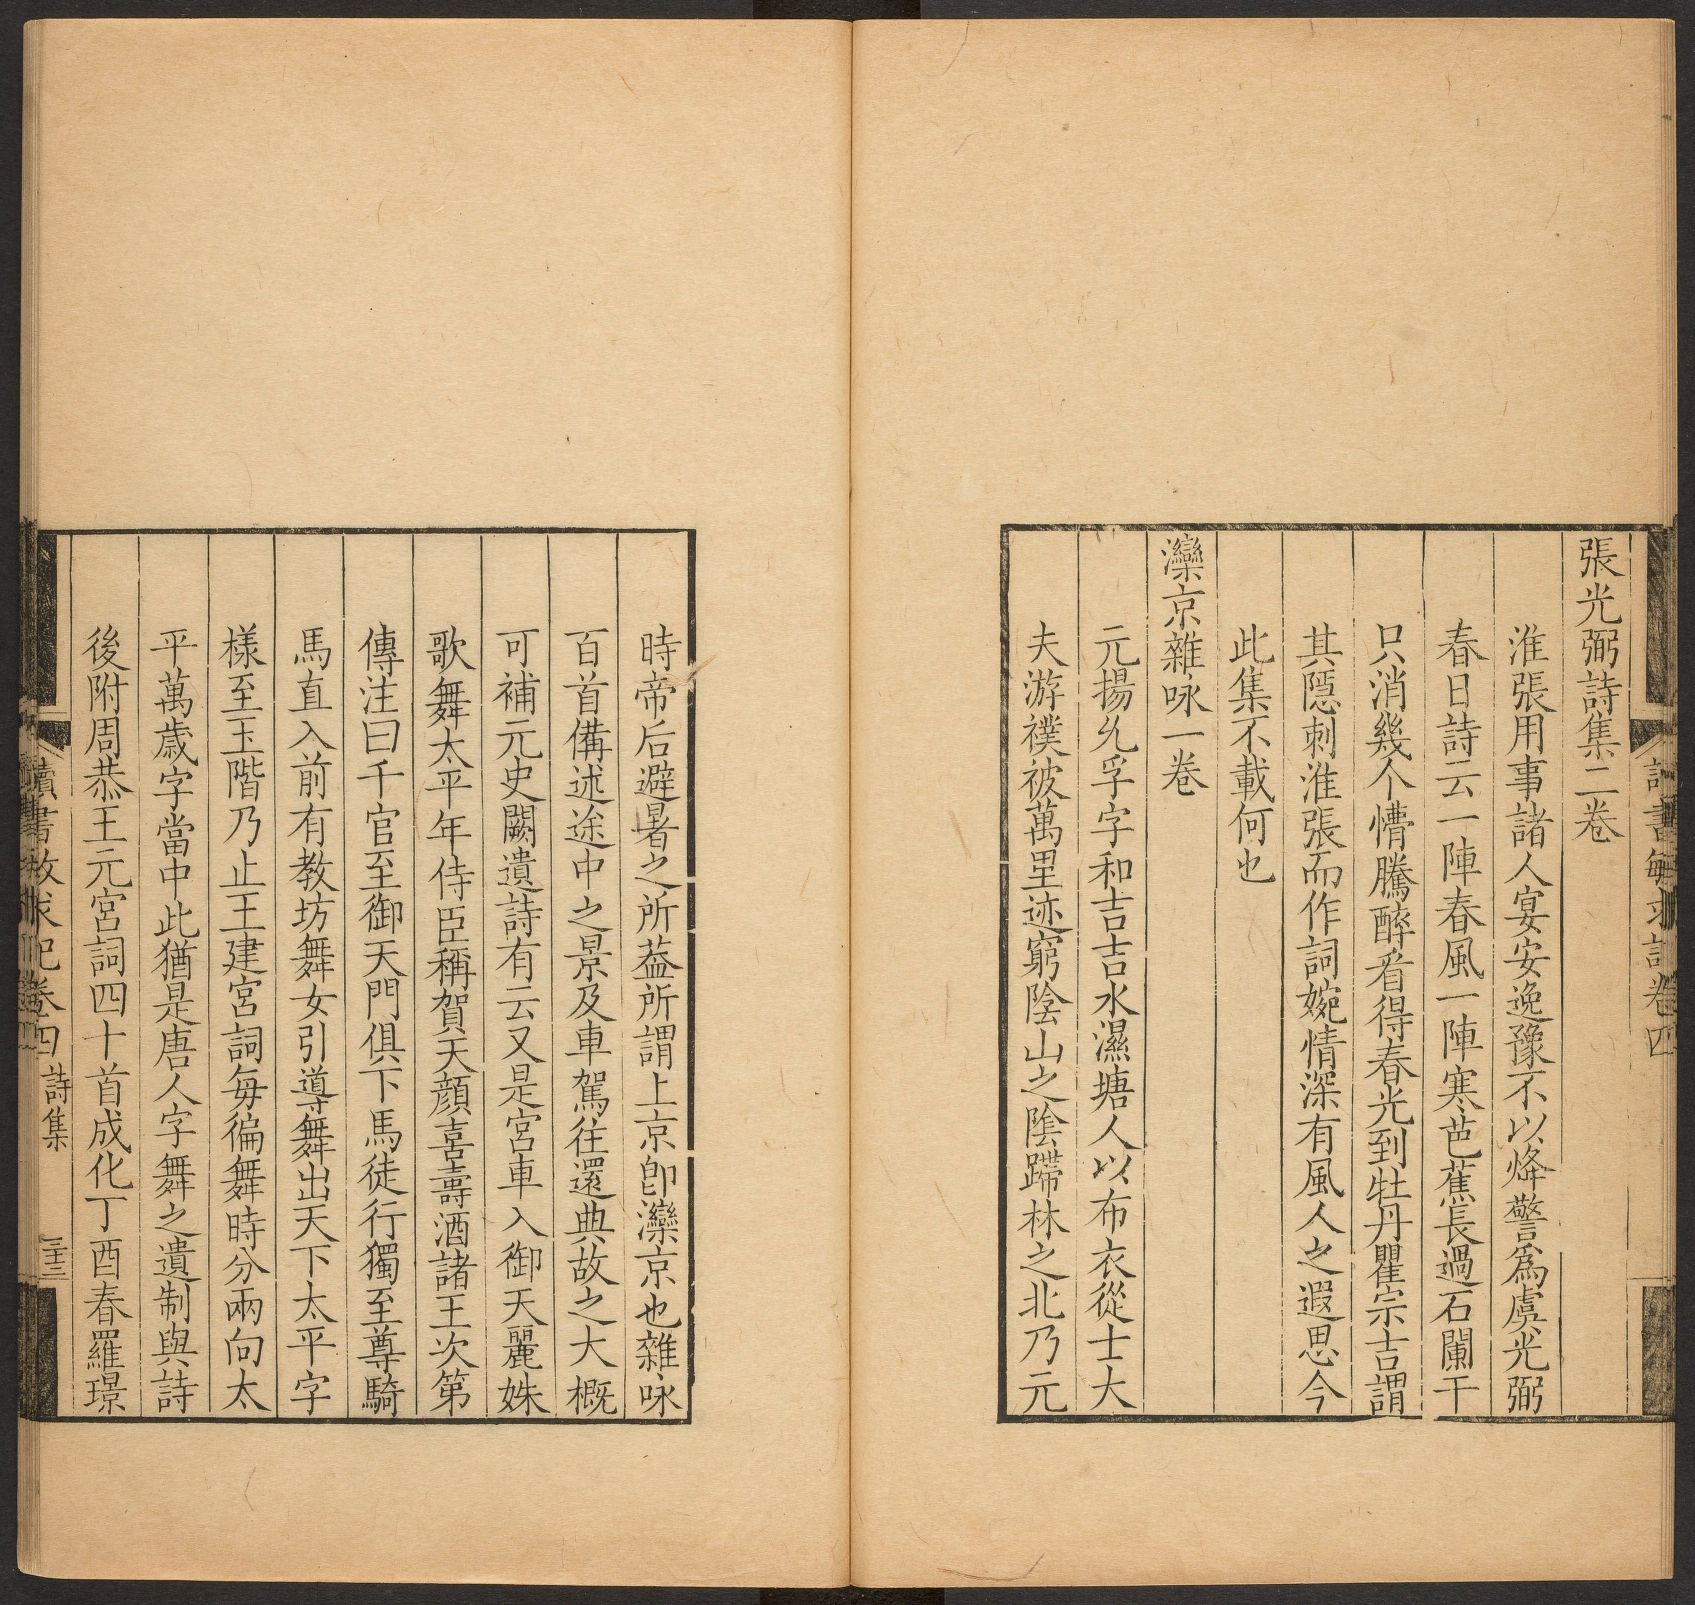 張光弼詩集二卷
淮張用事諸人宴安逸豫不以烽警爲虞光弼
春日詩云一陣春風一陣寒芭蕉長過石闌干
只消幾个懵騰醉看得春光到牡丹瞿宗吉謂
其隱刺淮張而作詞婉情深有風人之遐思今
此集不載何也
灤京雜咏一卷
元揚允孚字和吉吉水濕塘人以布衣從士大
夫游襆被萬里迹窮陰山之陰蹛林之北乃元
時帝后避暑之所葢所謂上京卽灤京也雜咏
百首備述途中之景及車駕往還典故之大概
可補元史闕遺詩有云又是宮車入御天麗姝
歌舞太平年侍臣稱賀天顏喜壽酒諸王次第
傳注曰千官至御天門俱下馬徒行獨至尊騎
馬直入前有教坊舞女引導舞出天下太平字
樣至玉階乃止王建宮詞每徧舞時分兩向太
平萬歲字當中此猶是唐人字舞之遺制與詩
後附周恭王元宮詞四十首成化丁酉春羅璟
讀書敏求記卷四 詩集 三十三